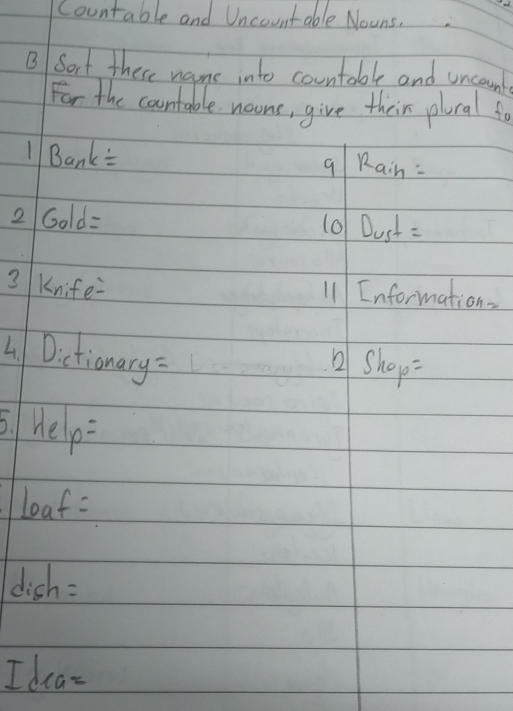 Countable and Uncountable Nouns.
B Sort these name into countable and uncount
For the countable nouns, give their plural fo
1 Bank=
9 Rain=
2 Gold=
10 Dust=
3 Knife=
11 Information=
4. Dictionary=
12 Shop=
5. Help=
loaf=
dish=
Idea=